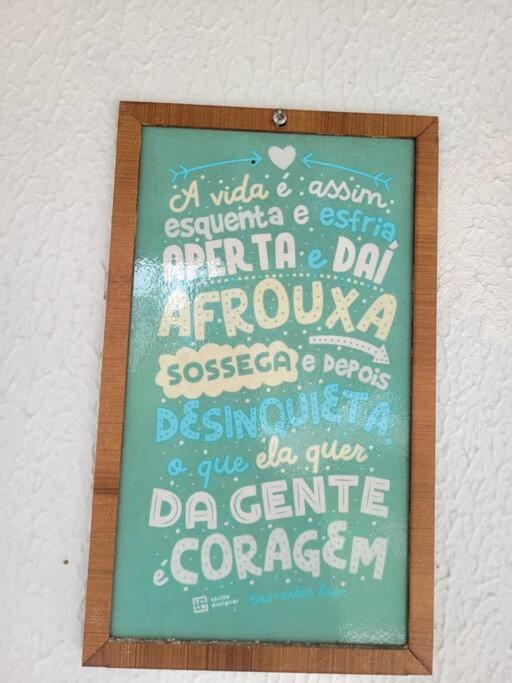 A vida é assim
esquenta e esfria,
APERTA e DAÍ
AFROUXA
SOSSEGA e DEPOIS
DESINQUIETA.
o que ela quer
DA GENTE
é CORAGEM
Guimarães Rosa
designer